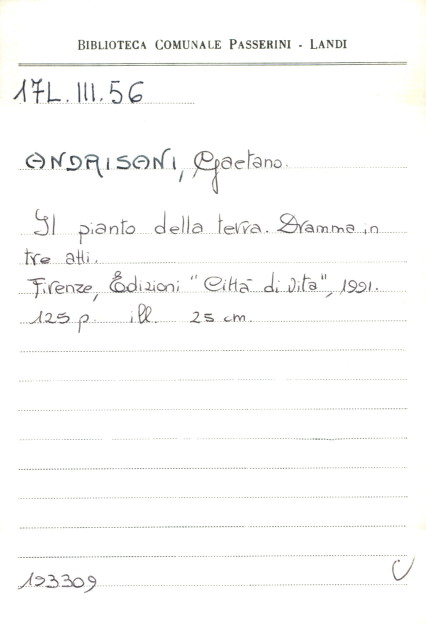 BIBLIOTECA COMUNALE PASSERINI - LANDI
17L.III.56
ANDRISANI, Gaetano.
Il pianto della terra. Dramma in
tre atti.
Firenze, Edizioni "Città di Vita", 1991.
125 p. ill. 25 cm.
193309